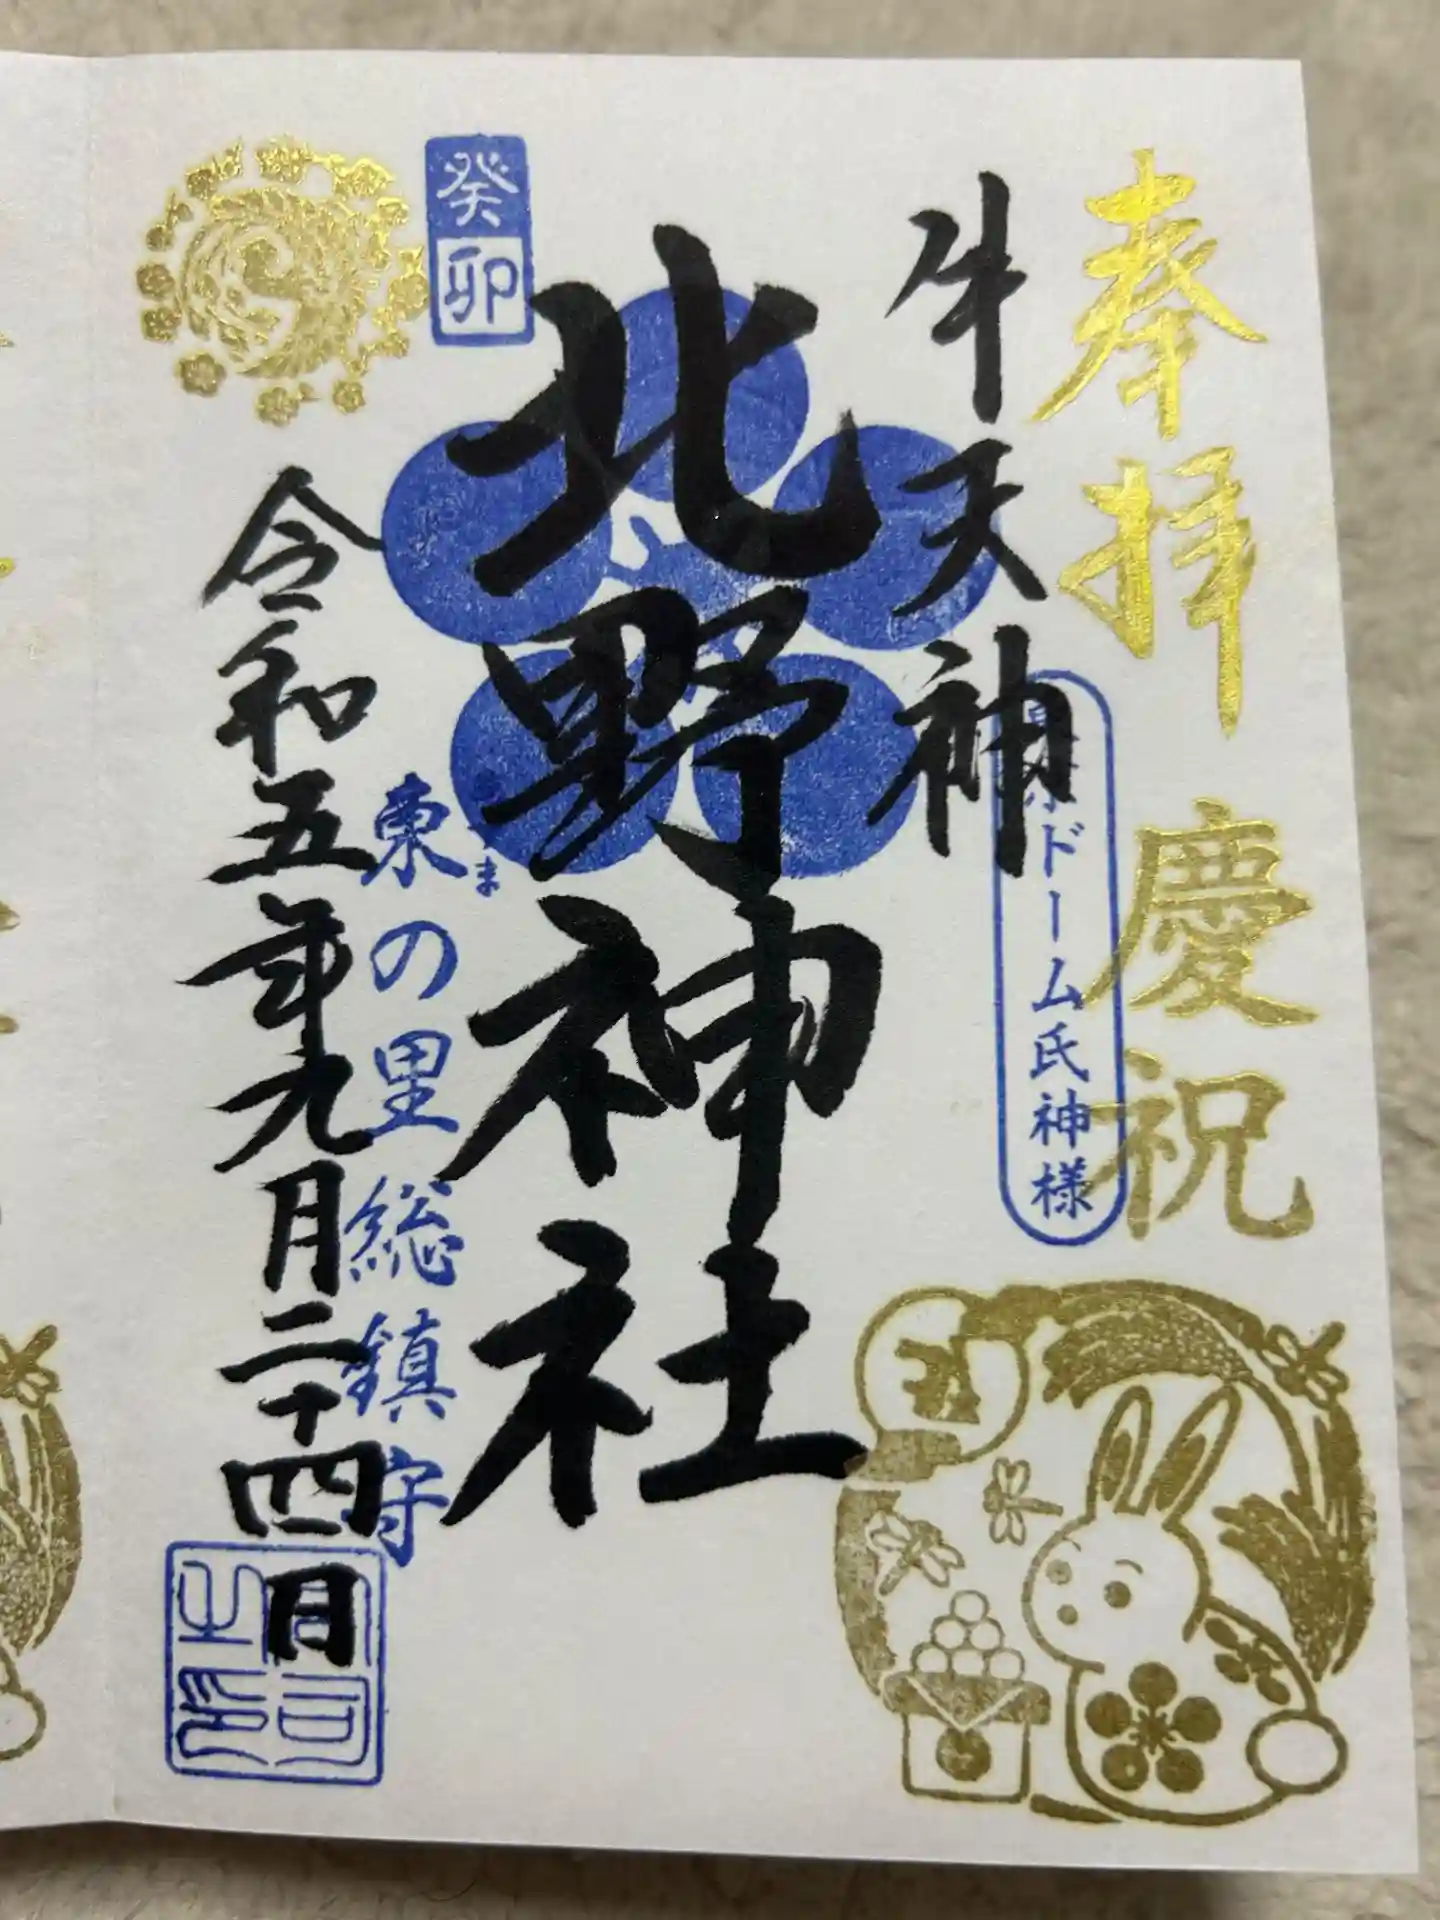 奉拝
慶祝
ドーム氏神様
牛天神
北野神社
癸卯
東の里総鎮守
ま
令和五年九月二十四日